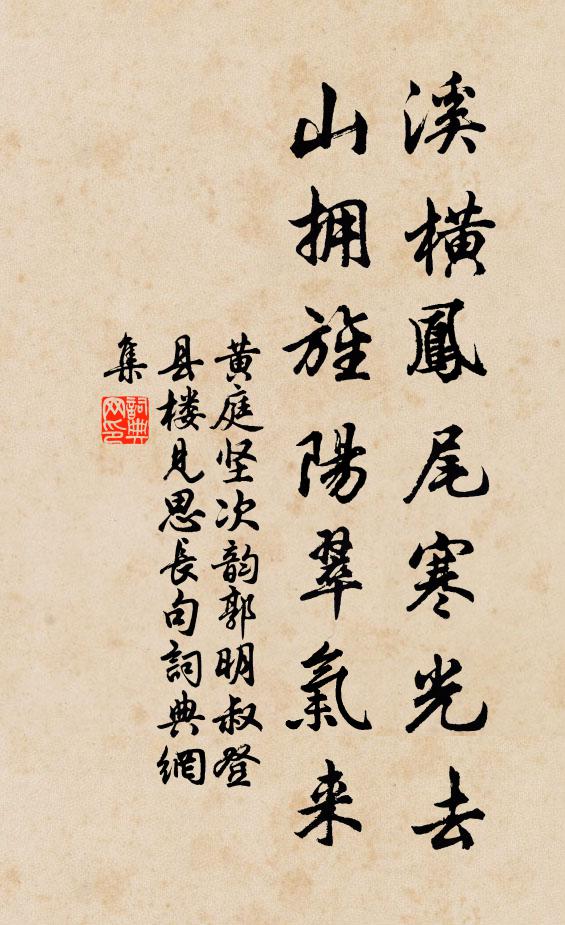 溪橫鳳尾寒光去
山拥旌陽翠氣来
黄庭坚次韵郭明叔登
县楼見思長句詞典網
集
詞典
网印